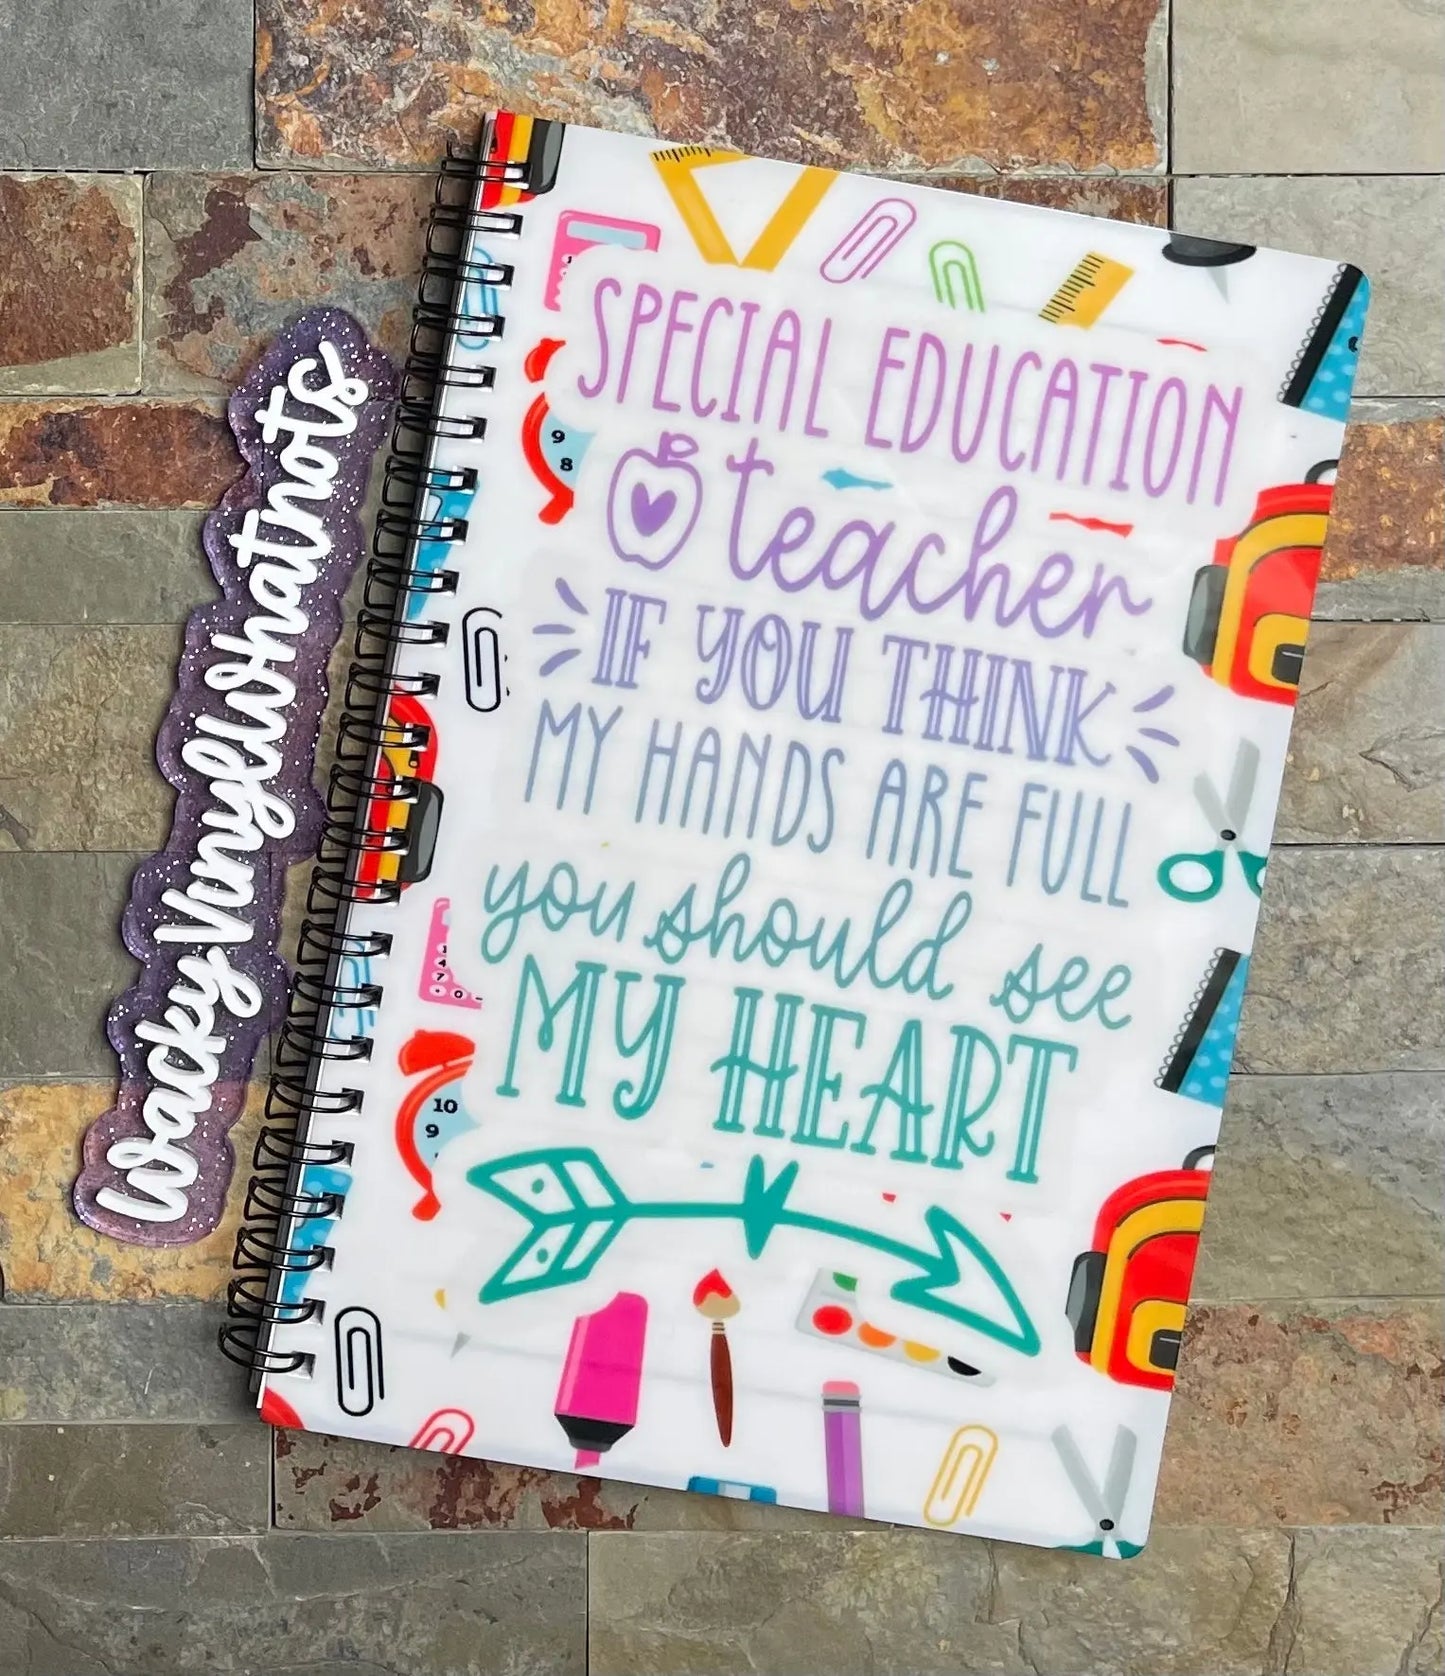 WackyVinylWhatnots
SPECIAL EDUCATION
teacher
IF YOU THINK
MY HANDS ARE FULL
you should see
MY HEART
9
8
10
9